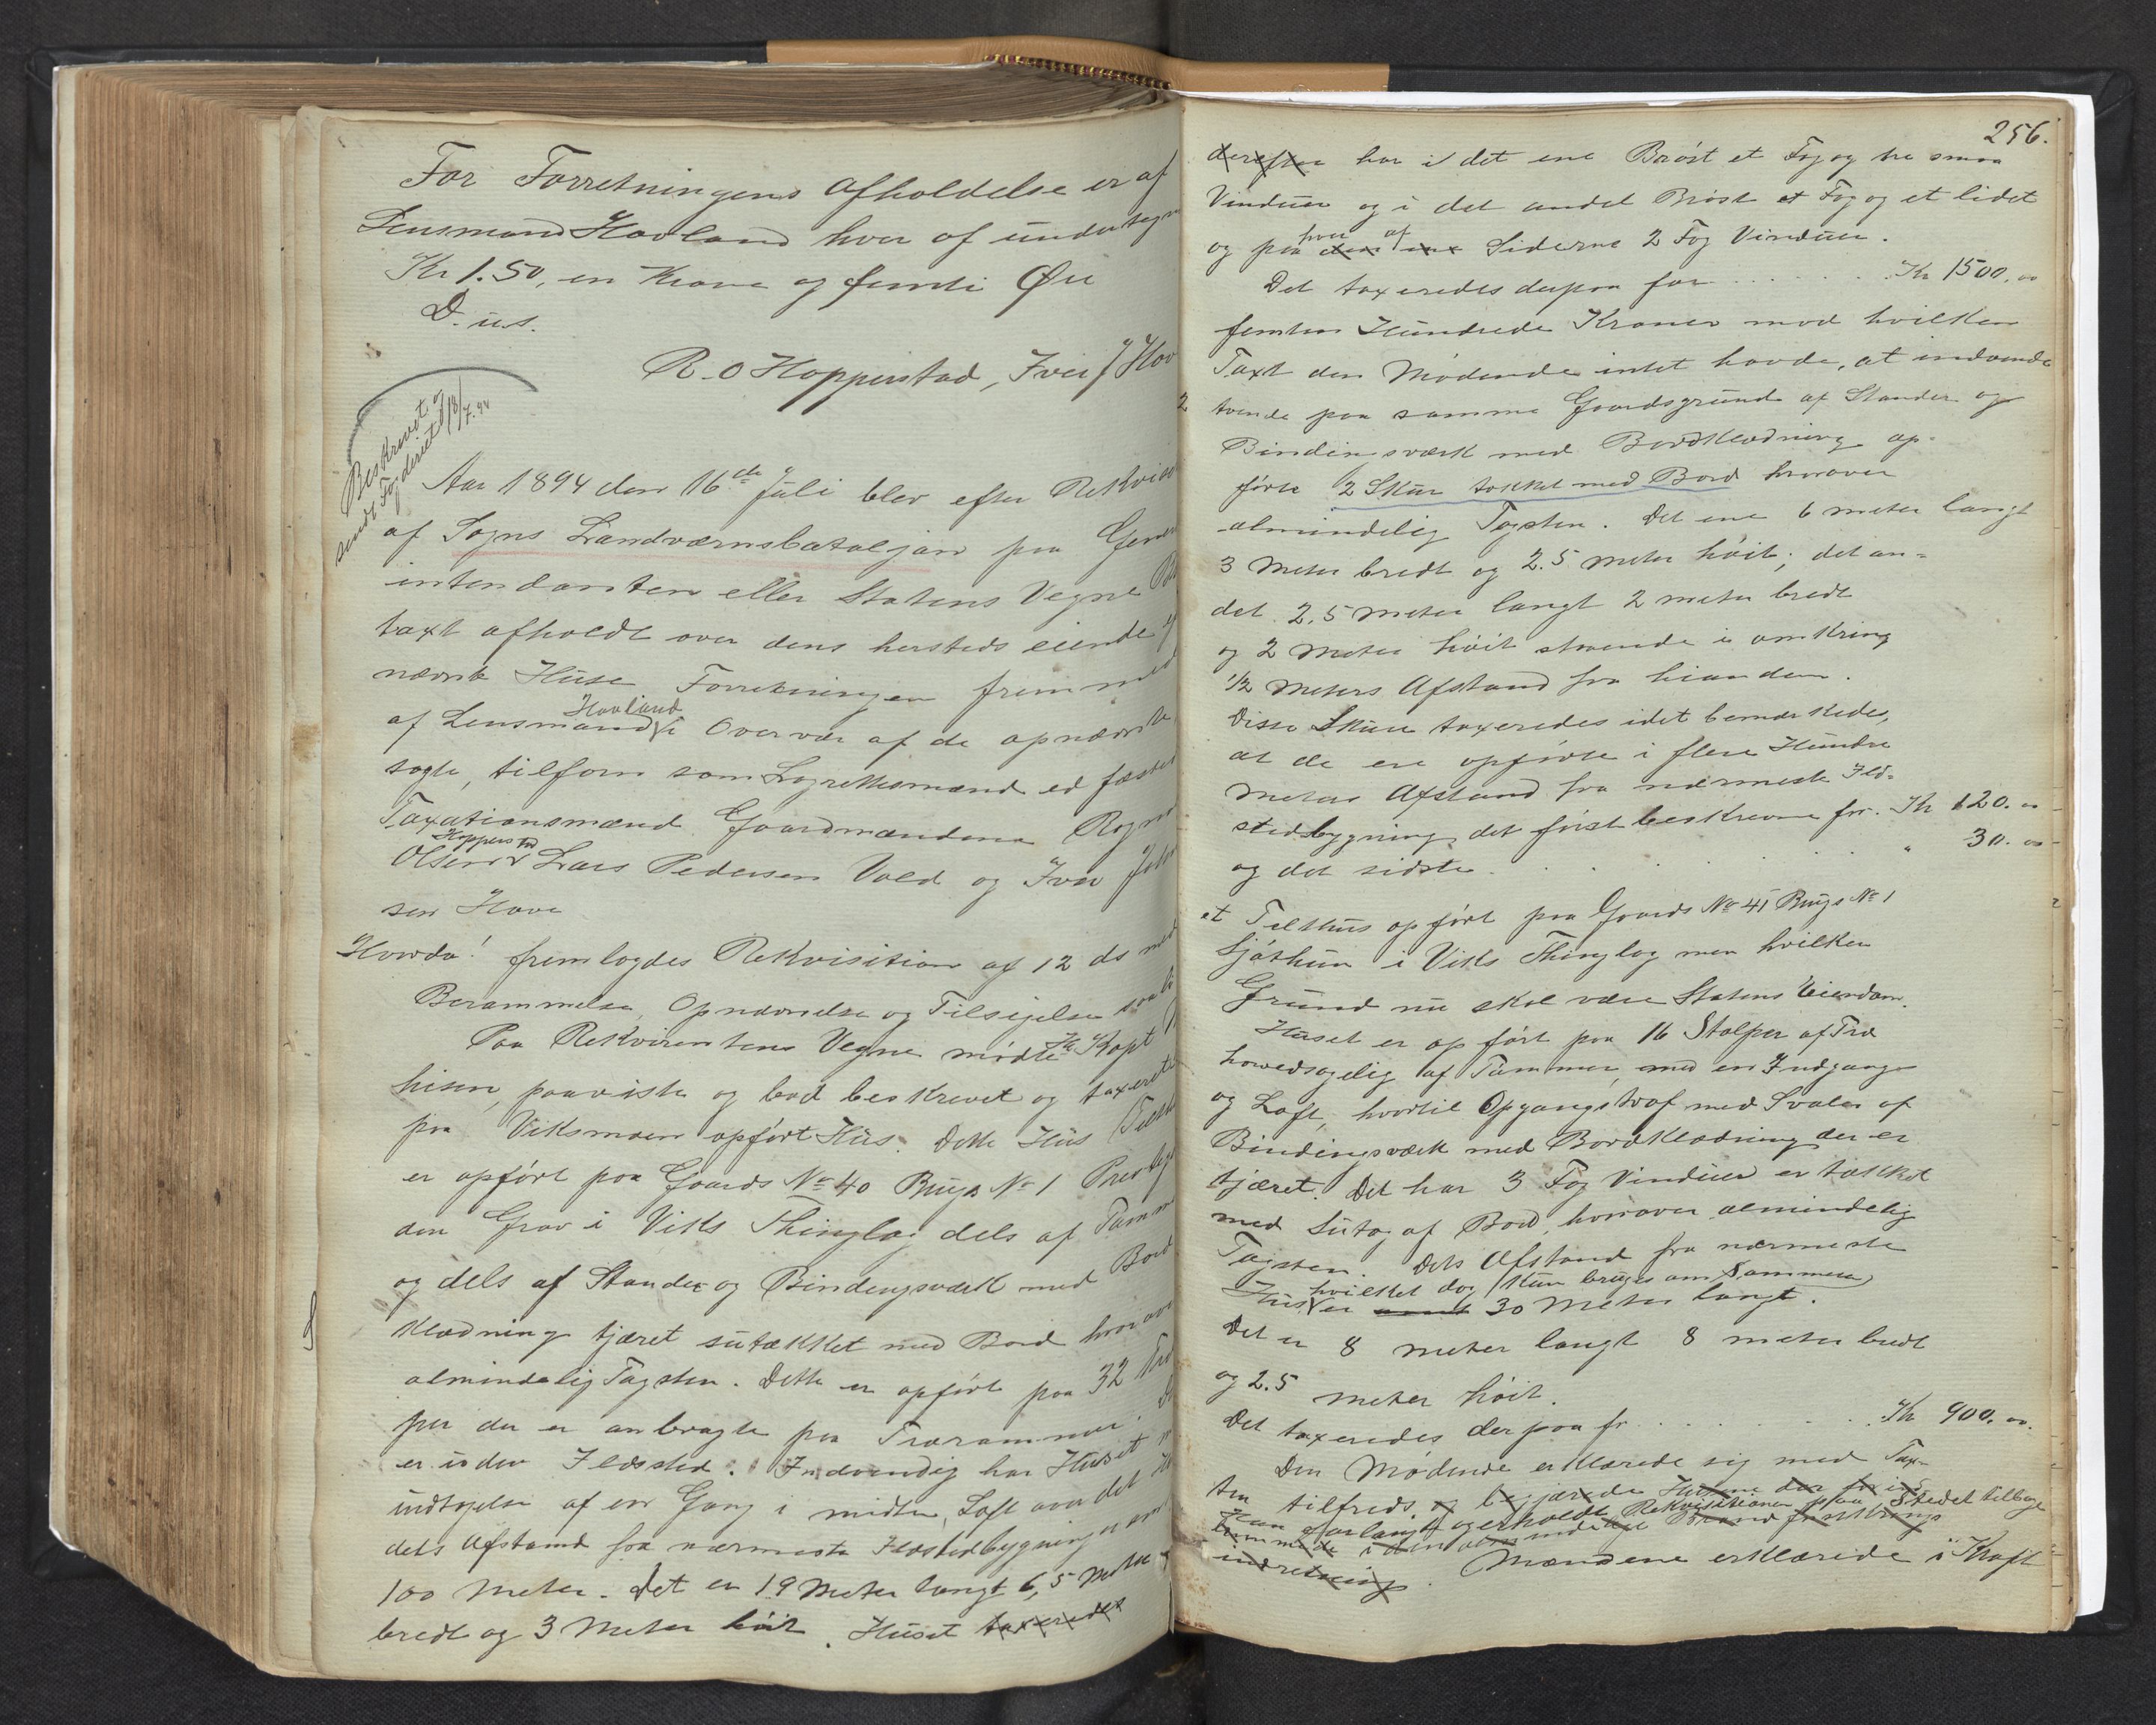 For Forretningens Afholdelse er af
Lensmand Hovland hver af undertegn
Kr 1.50, en Krone og femti Øre
D. u. s.
R. O Hopperstad, Iver J Hov
Beskrevet og
sendt Fogderiet 18/7. 94
Aar 1894 den 16de Juli blev efter Rekvisi
af Sogns Landværnsbataljon paa Gener
intendanten eller Statens Vegne B
taxt afholdt over dens hersteds eiende
nævnte Huse Forretningen fremmed
af Lensmand Hovland i Overvær af de opnævnte
sagte, tilforn som Lagrettesmænd ed fæstet
Taxationsmænd Gaardmændene Rogn
Olsen Hopperstad Lars Pedersen Vold og Iver Joh
sen Hove
Hvorda! fremlagdes Rekvisition af 12 ds med
Berammelse, Opnævnelse og Tilsigelse saal
Paa Rekvirentens Vegne mødte Hr Kapt
hisen, paaviste og bad beskrevet og taxeret
paa Viksmoen opført Hus. Dette Hus Telth
er opført paa Gaards No 40 Brugs No 1 Prestega
den Grov i Viks Thinglag dels af Tømm
og dels af Stander og Bindingsværk med Bord
klædning tjæret sutækket med Bord hvorover
almindelig Tagsten. Dette er opført paa 32 Træ
per der er anbragte paa Trærammer. D
er uden Ildsted. Indvendig har Huset
indtagelse af en Gang i midten, Loft over det
dets Afstand fra nærmeste Ildstedbygning er om
100 Meter. Det er 19 Meter langt 6,5 Meter
bredt og 3 Meter høit. Huset taxeredes
256.
derefter har i det ene Brøst et Fag og tre smaa
Vinduer og i det andet Brøst et Fag og et lidet
og paa den ene hver af Siderne 2 Fag Vinduer.
Det taxeredes derpaa for . . . . . . Kr 1500. 00
femten Hundrede Kroner mod hvilken
Taxt den Mødende intet havde, at indvende
2 tvende paa samme Gaardsgrund af Stander og
Bindingsværk med Bordklædning op-
førte 2 Skur tækket med Bord hvorover
almindelig Tagsten. Det ene 6 meter langt
3 Meter bredt og 2.5 meter høit; det an=
det 2,5 meter langt 2 meter bredt
og 2 Meter høit staaende i omkring
1/2 Meters Afstand fra hinanden.
Disse Skure taxeredes idet bemærkedes,
at de ere opførte i flere Hundre
Meters Afstand fra nærmeste Ild=
stedbygning, det først beskrevne for. Kr 120. 00
og det sidste . . . . . . " 30. 00
et Telthus opført paa Gaards No 41 Brugs No 1
Sjøthun i Viks Thinglag men hvilken
Grund nu skal være Statens Eiendom.
Huset er opført paa 16 Stolper af Træ
hovedsagelig af Tømmer, med en Indgang
og Loft, hvortil Opgangstraf med Svaler af
Bindingsværk med Bordklædning der er
tjæret. Det har 3 Fag Vinduer er tækket
med Sutag af Bord, hvorover almindelig
Tagsten. Dets Afstand fra nærmeste
Hus hvilket dog kun bruges om Sommeren er 30 Meter langt.
Det er 8 meter langt 8 meter bredt
og 2.5 meter høit.
Det taxeredes derpaa for . . . . . . Kr 900. 00.
Den Mødende erklærede sig med Tax-
ten tilfreds, og begjærede Husene der
Han forlangte og erholdt Rekvisitionen paa Stedet tilbage
indretning. Mændene erklærede i Kraft